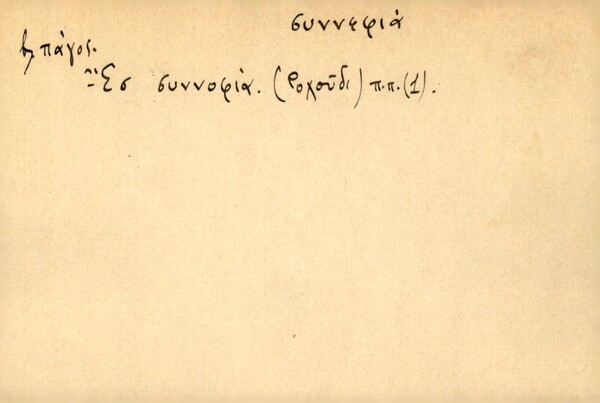 συννεφιά
βλ πάγος.
Ἔσ συννοφιά. (Ροχούδι) π.π. (1).